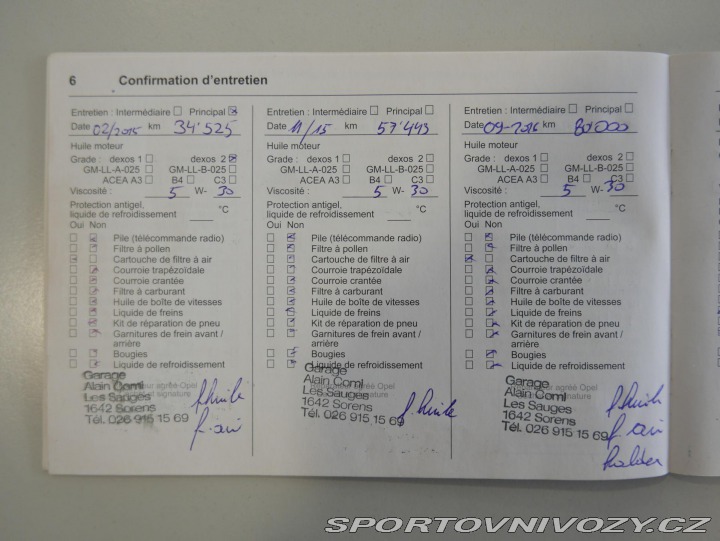 6 Confirmation d'entretien
Entretien : Intermédiaire Principal
Date 02/2015 km 34'525
Huile moteur
Grade : dexos 1 dexos 2
GM-LL-A-025 GM-LL-B-025
ACEA A3 B4 C3
Viscosité : 5 W- 30
Protection antigel,
liquide de refroidissement °C
Oui Non
Pile (télécommande radio)
Filtre à pollen
Cartouche de filtre à air
Courroie trapézoïdale
Courroie crantée
Filtre à carburant
Huile de boîte de vitesses
Liquide de freins
Kit de réparation de pneu
Garnitures de frein avant /
arrière
Bougies
Liquide de refroidissement
Garage
Alain Comi
Les Sauges
1642 Sorens
Tél. 026 915 15 69
agréé Opel
signature
f. huile
f. air
Entretien : Intermédiaire Principal
Date 11/15 km 57'443
Huile moteur
Grade : dexos 1 dexos 2
GM-LL-A-025 GM-LL-B-025
ACEA A3 B4 C3
Viscosité : 5 W- 30
Protection antigel,
liquide de refroidissement °C
Oui Non
Pile (télécommande radio)
Filtre à pollen
Cartouche de filtre à air
Courroie trapézoïdale
Courroie crantée
Filtre à carburant
Huile de boîte de vitesses
Liquide de freins
Kit de réparation de pneu
Garnitures de frein avant /
arrière
Bougies
Liquide de refroidissement
Garage
Alain Comi
Les Sauges
1642 Sorens
Tél. 026 915 15 69
agréé Opel
f. huile
Entretien : Intermédiaire Principal
Date 09-2016 km 80'000
Huile moteur
Grade : dexos 1 dexos 2
GM-LL-A-025 GM-LL-B-025
ACEA A3 B4 C3
Viscosité : 5 W- 30
Protection antigel,
liquide de refroidissement °C
Oui Non
Pile (télécommande radio)
Filtre à pollen
Cartouche de filtre à air
Courroie trapézoïdale
Courroie crantée
Filtre à carburant
Huile de boîte de vitesses
Liquide de freins
Kit de réparation de pneu
Garnitures de frein avant /
arrière
Bougies
Liquide de refroidissement
Garage
Alain Comi
Les Sauges
1642 Sorens
Tél. 026 915 15 69
agréé Opel
signature
f. huile
f. air
SPORTOVNIVOZY.CZ